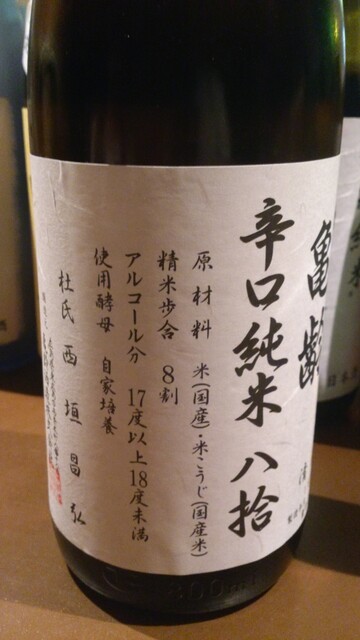 亀齢
辛口純米 八拾
原材料 米(国産)・米こうじ(国産米)
精米歩合 8割
アルコール分 17度以上18度未満
使用酵母 自家培養
杜氏 西垣昌弘